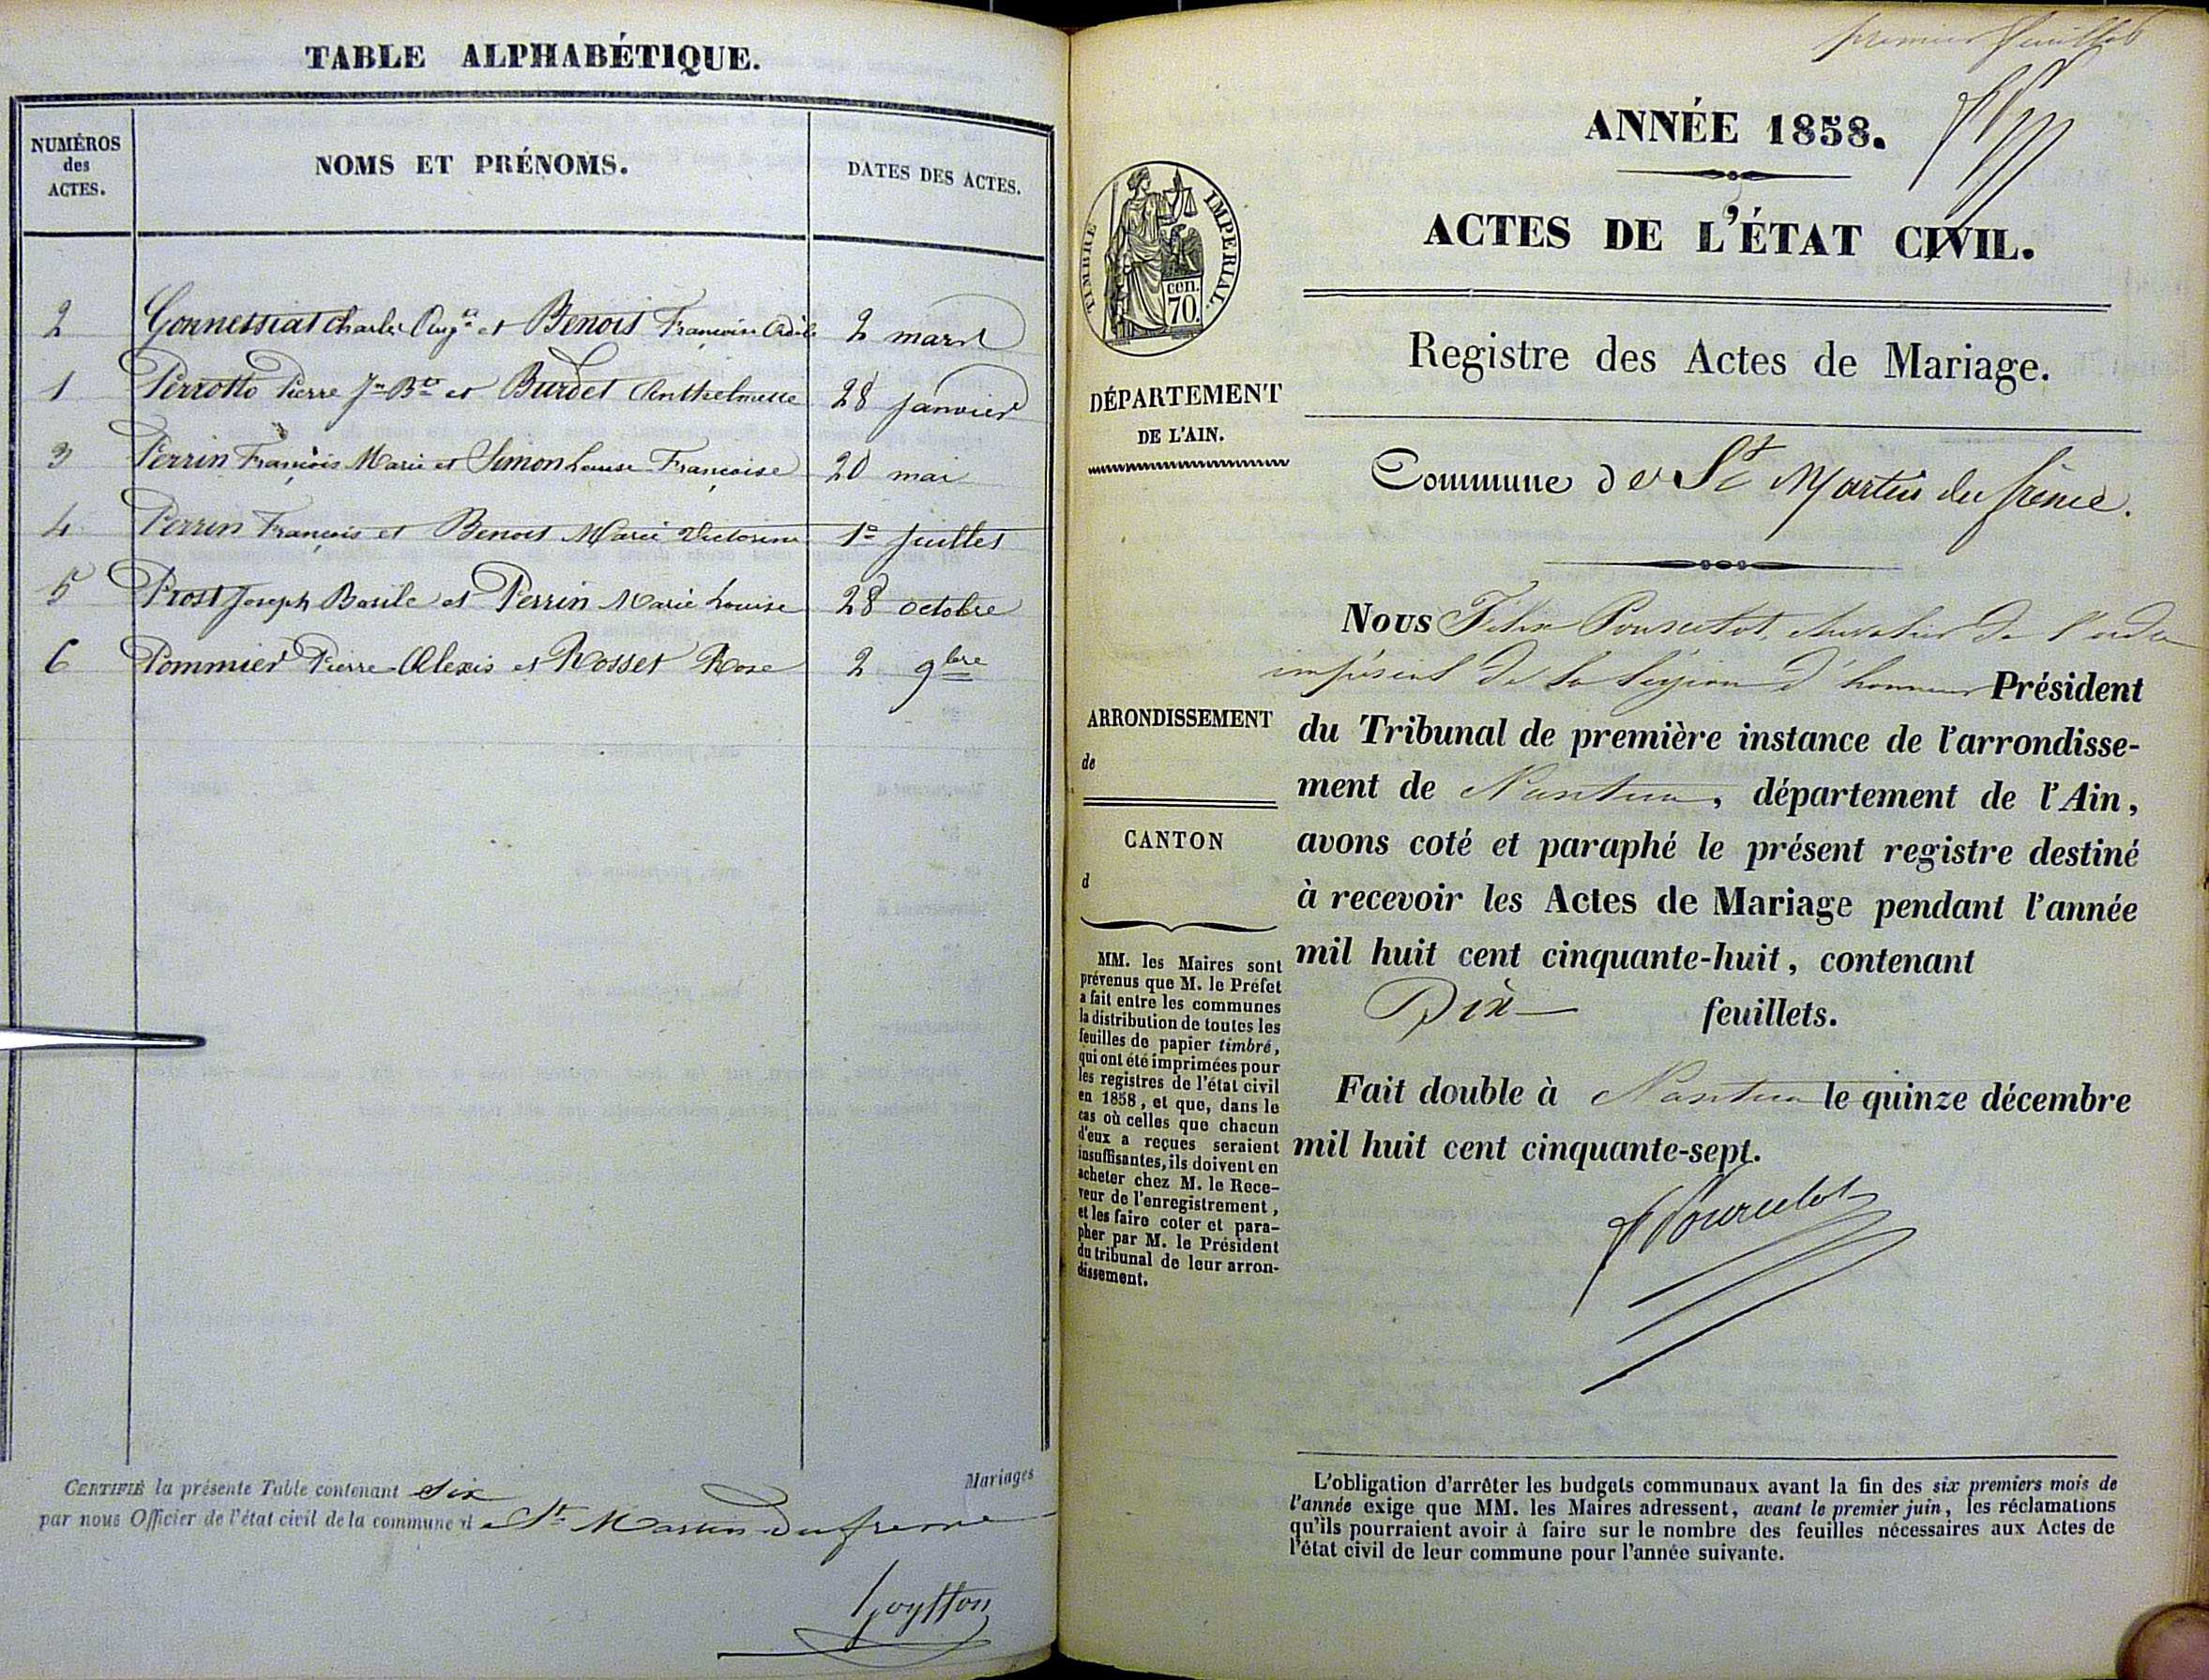 TABLE ALPHABÉTIQUE.
NUMÉROS
des
ACTES.
NOMS ET PRÉNOMS.
DATES DES ACTES.
2 Gonnessiat Charles Aug.te et Benoit Françoise Adèle 2 mars
1 Perrotto Pierre Jn Bte et Burdet Anthelmette 28 janvier
3 Perrin François Marie et Simon Louise Françoise 20 mai
4 Perrin François et Benoit Marie Victorine 1er juillet
5 Prost Joseph Basile et Perrin Marie Louise 28 octobre
6 Pommier Pierre Alexis et Rosset Rose 2 9bre
CERTIFIÉ la présente Table contenant Six Mariages
par nous Officier de l'état civil de la commune de St Martin du fresne
premier feuillet
ANNÉE 1858.
ACTES DE L'ÉTAT CIVIL.
TIMBRE IMPERIAL.
cen.
70.
Registre des Actes de Mariage.
DÉPARTEMENT
DE L'AIN.
Commune de St Martin du frêne.
Nous Félix Pourcelot, chevalier de l'ordre
impérial de la Légion d'honneur Président
du Tribunal de première instance de l'arrondisse-
ment de Nantua, département de l'Ain,
avons coté et paraphé le présent registre destiné
à recevoir les Actes de Mariage pendant l'année
mil huit cent cinquante-huit, contenant
Dix feuillets.
Fait double à Nantua le quinze décembre
mil huit cent cinquante-sept.
F Pourcelot
ARRONDISSEMENT
de
CANTON
d
MM. les Maires sont
prévenus que M. le Préfet
a fait entre les communes
la distribution de toutes les
feuilles de papier timbré,
qui ont été imprimées pour
les registres de l'état civil
en 1858, et que, dans le
cas où celles que chacun
d'eux a reçues seraient
insuffisantes, ils doivent en
acheter chez M. le Rece-
veur de l'enregistrement,
et les faire coter et para-
pher par M. le Président
du tribunal de leur arron-
dissement.
L'obligation d'arrêter les budgets communaux avant la fin des six premiers mois de
l'année exige que MM. les Maires adressent, avant le premier juin, les réclamations
qu'ils pourraient avoir à faire sur le nombre des feuilles nécessaires aux Actes de
l'état civil de leur commune pour l'année suivante.